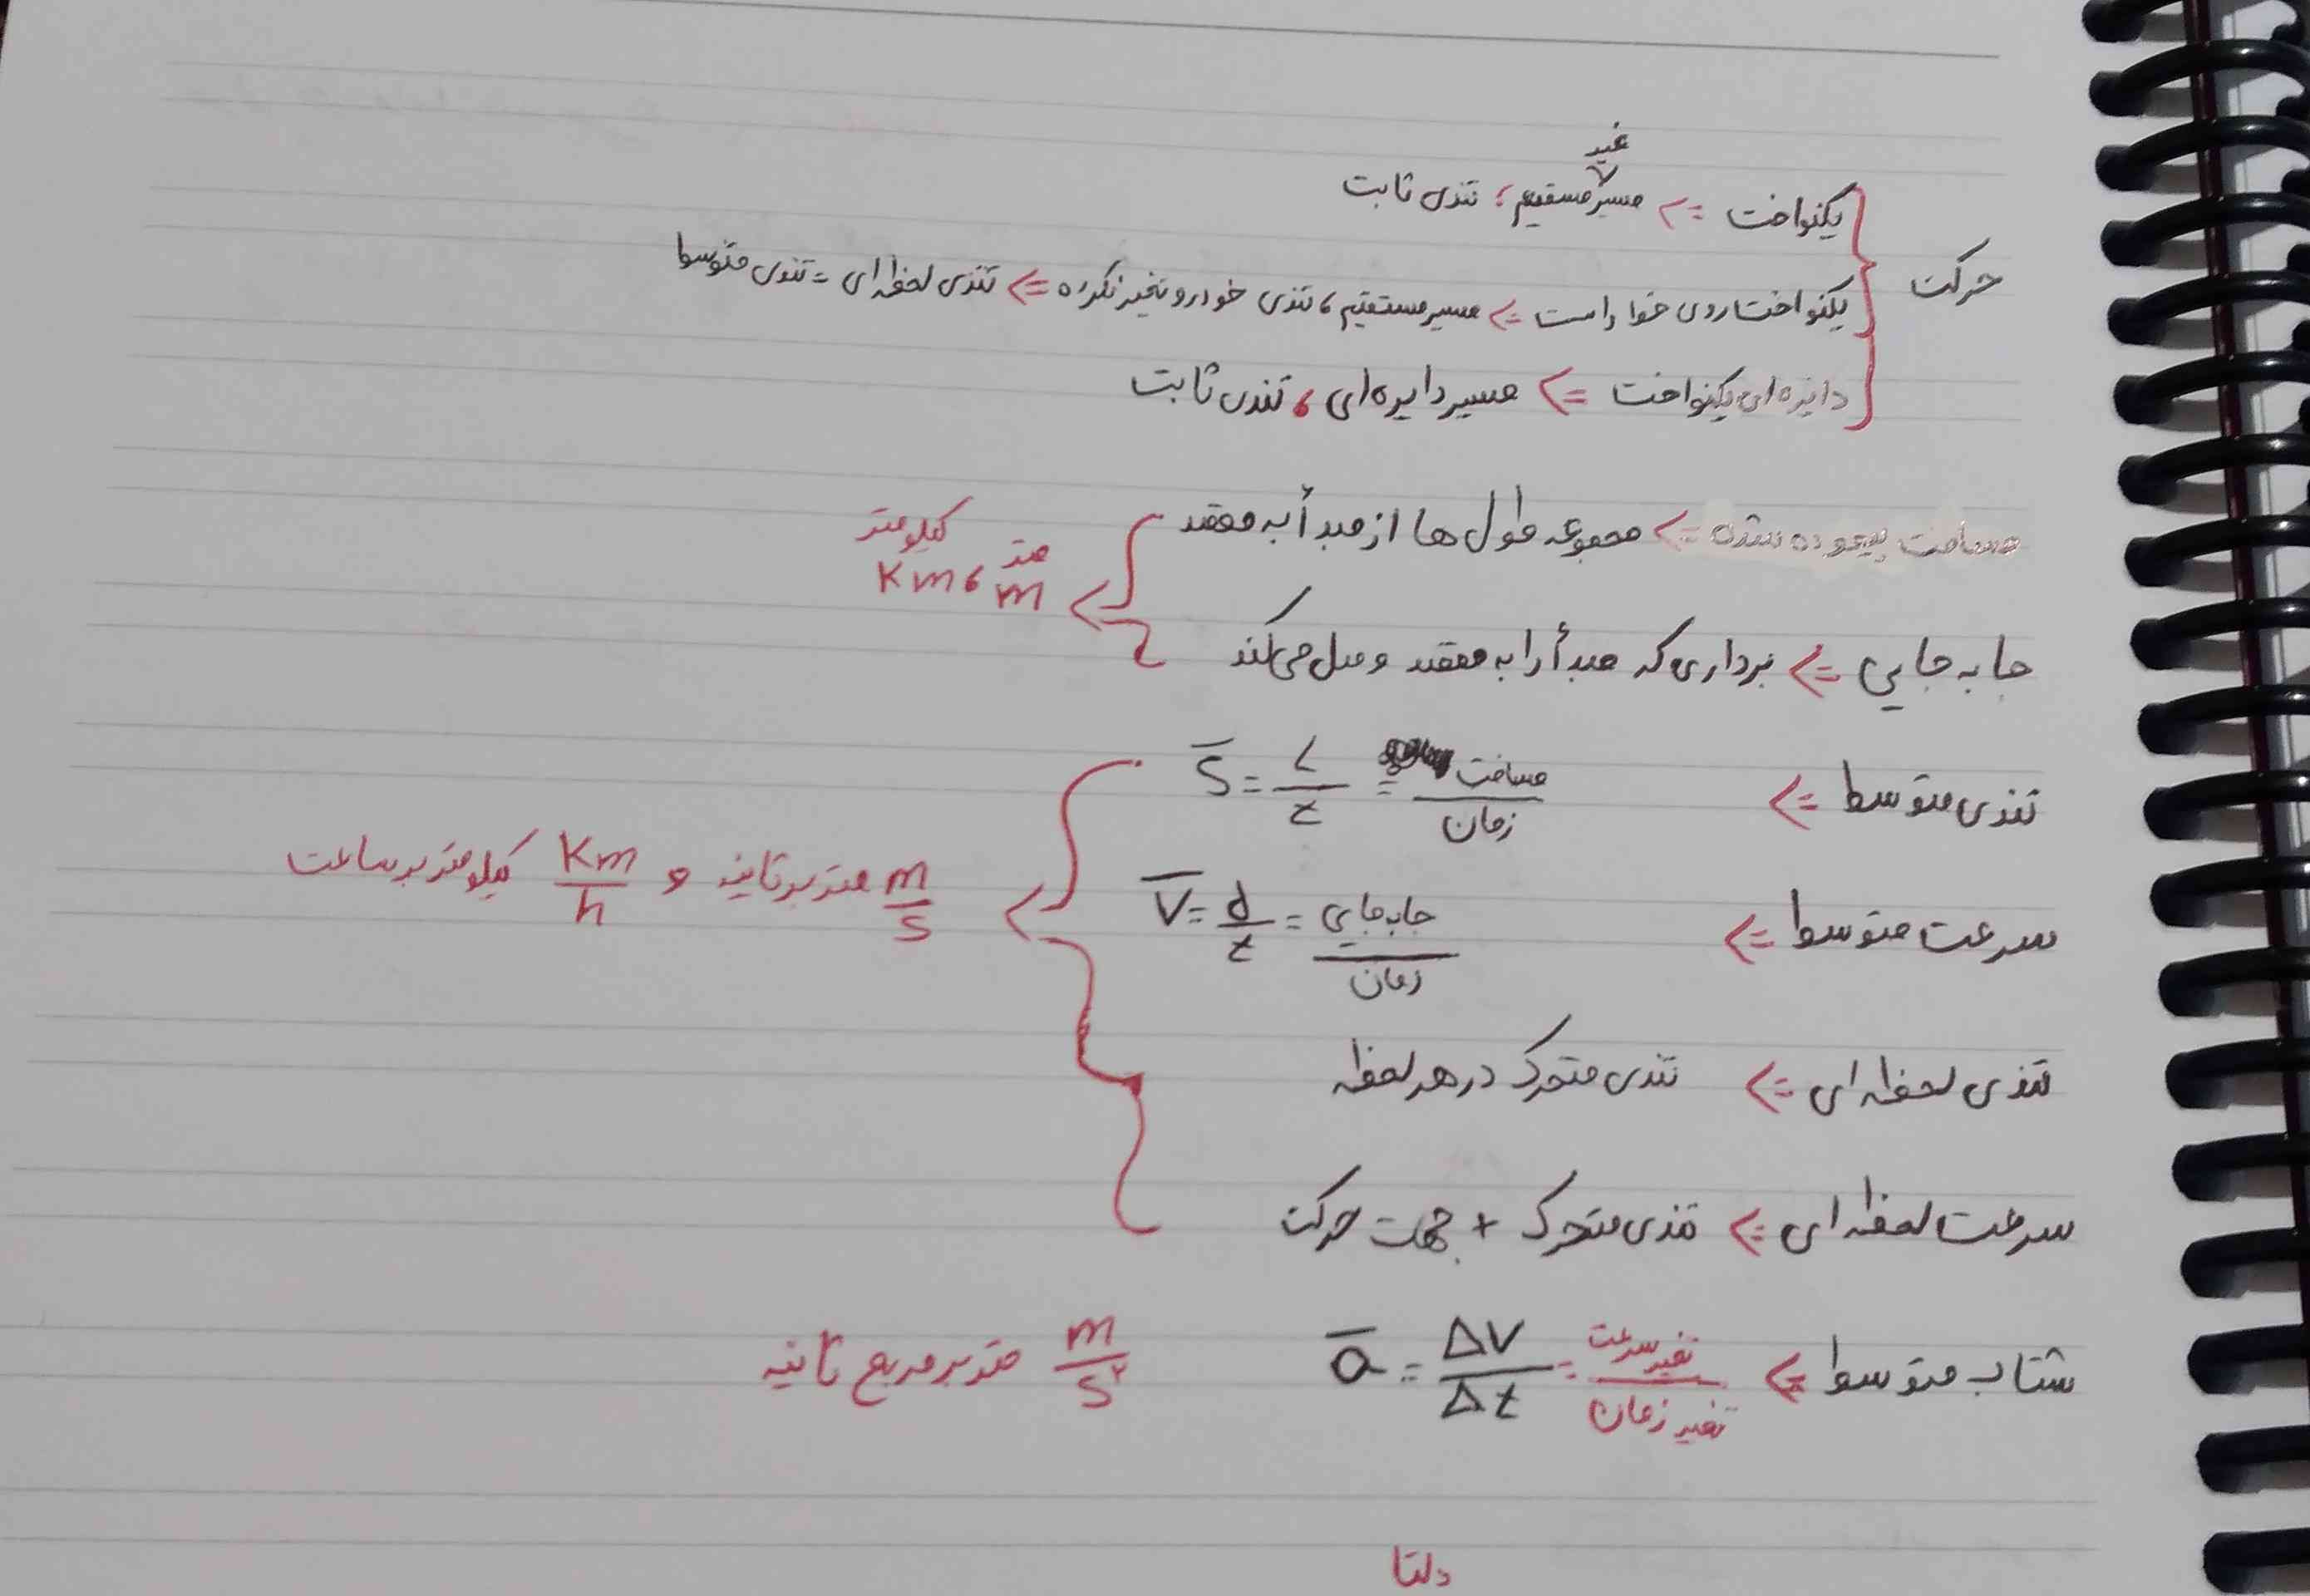 غیر
حرکت
یکنواخت => مسیر مستقیم؛ تندی ثابت
یکنواخت روی خط راست => مسیر مستقیم، تندی خودرو تغییر نکرده => تندی لحظه ای = تندی متوسط
دایره ای یکنواخت => مسیر دایره ای، تندی ثابت
مسافت پیموده شده => مجموعه طول ها از مبدأ به مقصد
متر کیلومتر
m ، Km
جا به جایی => برداری که مبدأ را به مقصد وصل می کند
تندی متوسط => S̄ = L/t = مسافت/زمان
سرعت متوسط => V̄ = d/t = جابه جایی/زمان
m/s متر بر ثانیه و Km/h کیلومتر بر ساعت
تندی لحظه ای => تندی متحرک در هر لحظه
سرعت لحظه ای => تندی متحرک + جهت حرکت
شتاب متوسط => ā = ΔV/Δt = تغییر سرعت/تغییر زمان m/s² متر بر مربع ثانیه
دلتا